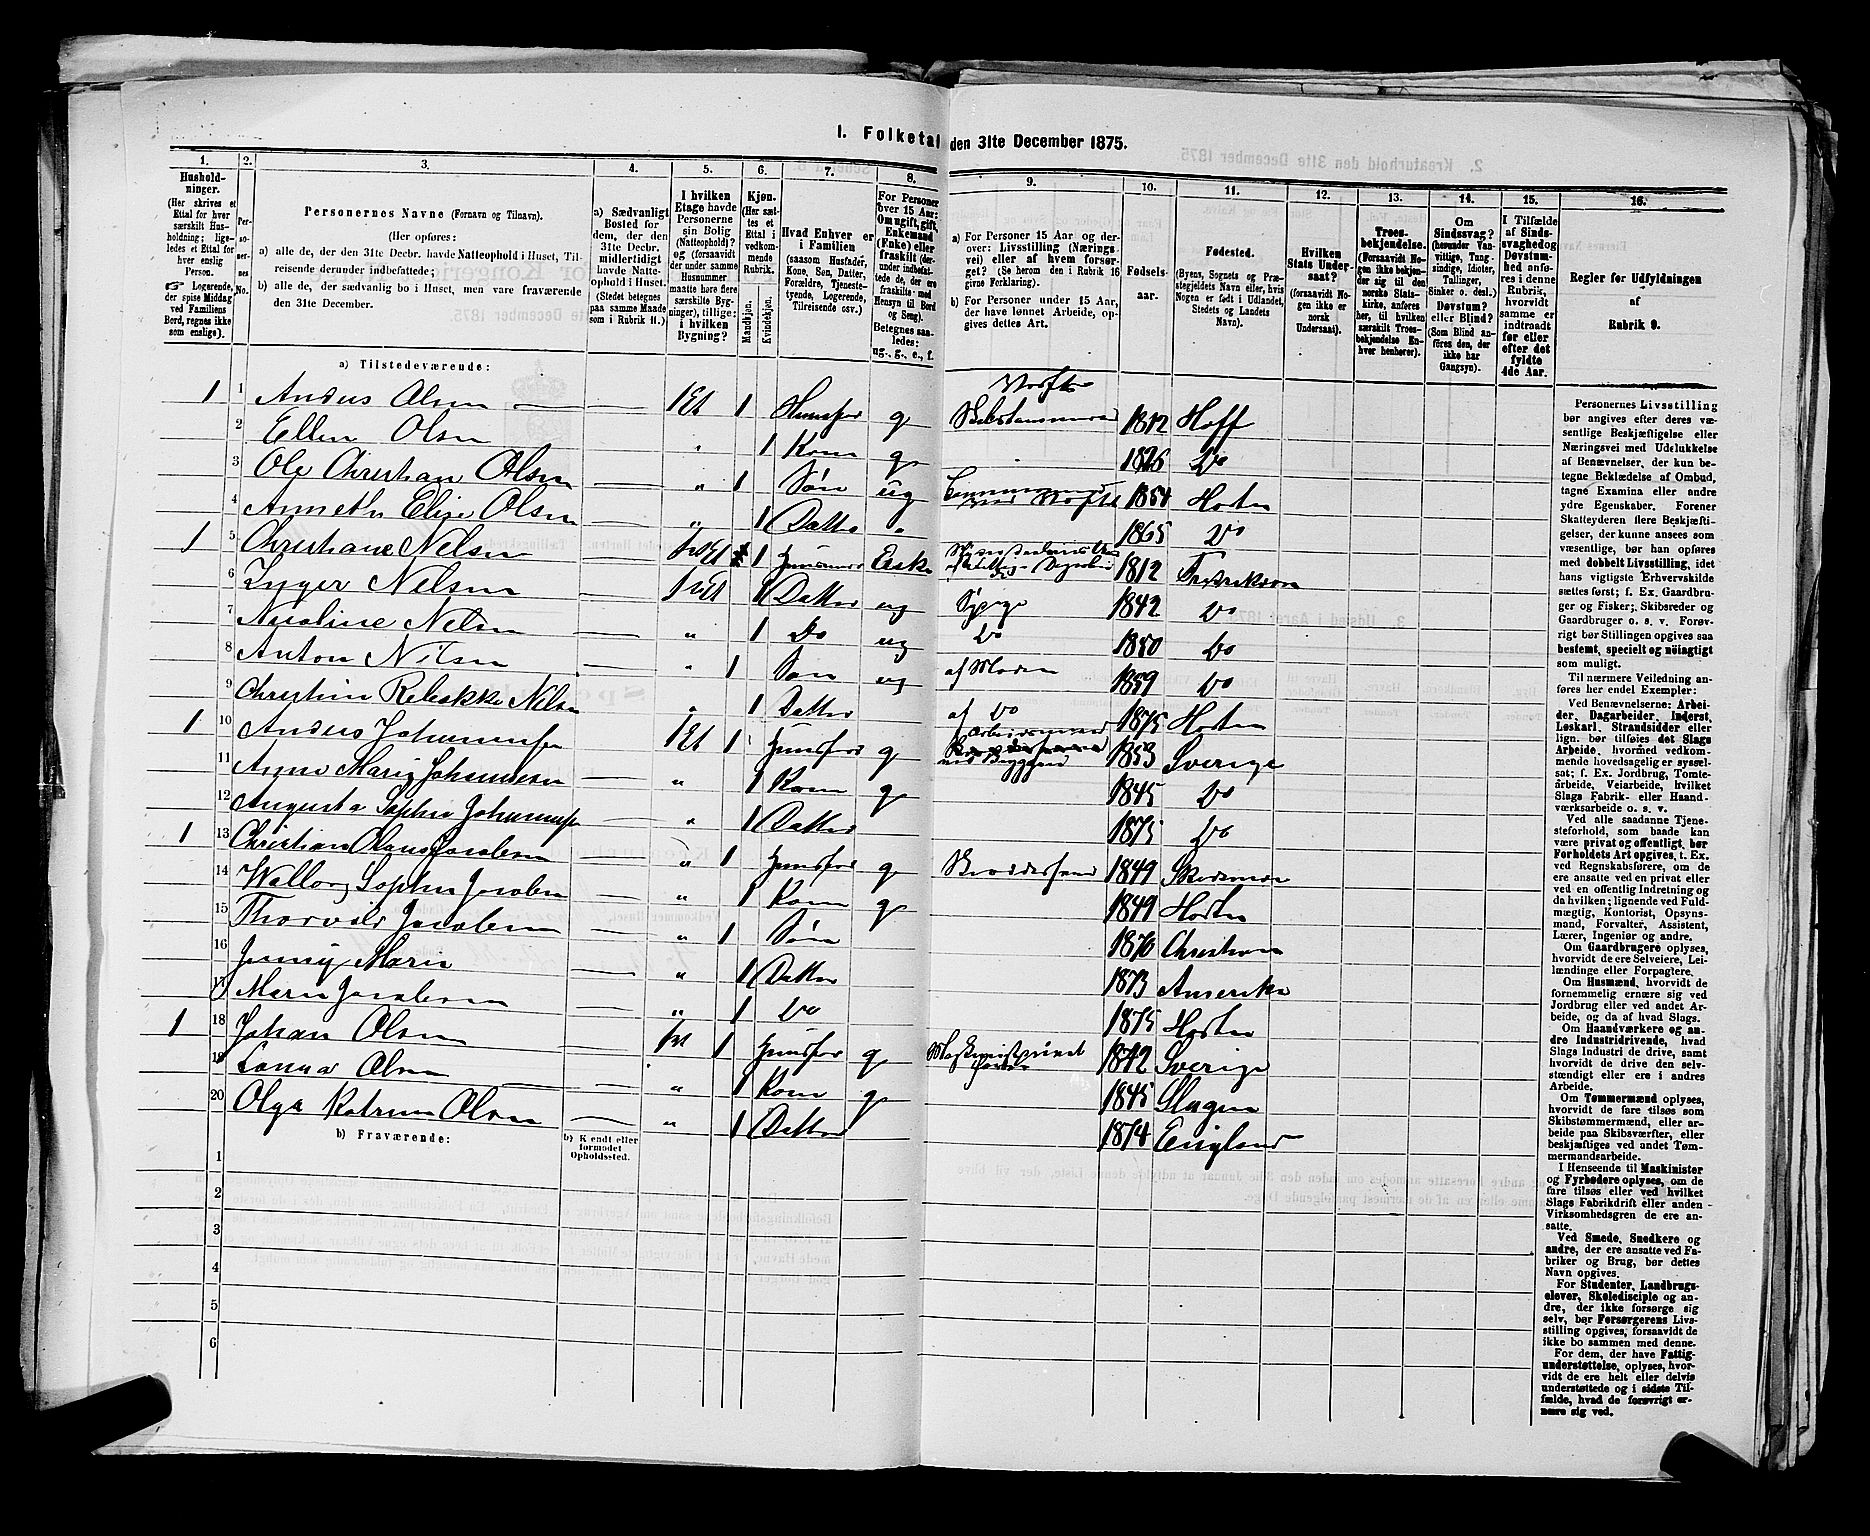 I. Folketal den 31te December 1875.
1. 2. 3. 4. 5. 6. 7. 8. 9. 10. 11. 12. 13. 14. 15. 16.
Husholdninger. (Her skrives et Ettal for hver særskilt Husholdning; ligeledes et Ettal for hver enslig Person. Logerende, der spise Middag ved Familiens Bord, regnes ikke som enslige).
Personernes No.
Personernes Navne (Fornavn og Tilnavn).
(Her opføres:
a) alle de, der den 31te Decbr. havde Natteophold i Huset, Tilreisende derunder indbefattede;
b) alle de, der sædvanlig bo i Huset, men vare fraværende den 31te December.
a) Sædvanligt Bosted for dem, der den 31te Decbr. midlertidigt havde Natteophold i Huset. (Stedet betegnes paa samme Maade som i Rubrik 11.)
I hvilken Etage havde Personerne sin Bolig (Natteophold)? og (forsaavidt der under samme Husnummer maatte høre flere særskilte Bygninger), tillige: i hvilken Bygning?
Kjøn. (Her sættes et Ettal i vedkommende Rubrik. Mandkjøn. Kvindekjøn.
Hvad Enhver er i Familien (saasom Husfader, Kone, Søn, Datter, Forældre, Tjenestetyende, Logerende, Tilreisende osv.)
For Personer over 15 Aar: Om ugift, gift, Enkemand (Enke) eller fraskilt (derunder indbefattede de, der ere fraskilte med Hensyn til Bord og Seng). Betegnes saaledes: ug., g., e., f.
a) For Personer 15 Aar og derover: Livsstilling (Næringsvei) eller af hvem forsørget? (Se herom den i Rubrik 16 givne Forklaring).
b) For Personer under 15 Aar, der have lønnet Arbeide, opgives dettes Art.
Fødselsaar.
Fødested. (Byens, Sognets og Præstegjeldets Navn eller, hvis Nogen er født i Udlandet, Stedets og Landets Navn).
Hvilken Stats Undersaat? (forsaavidt Nogen ikke er norsk Undersaat).
Troesbekjendelse. (Forsaavidt Nogen ikke bekjender sig til den norske Statskirke, anføres her, til hvilken særskilt Troesbekjendelse Enhver henhører).
Om Sindssvag? (herunder Vanvittige, Tungsindige, Idioter, Tullinger, Sinker o. desl.) Døvstum? eller Blind? (Som Blind anføres den, der ikke har Gangsyn).
I Tilfælde af Sindssvaghed og Døvstumhed anføres i denne Rubrik, hvorvidt samme er indtraadt før eller efter det fyldte 4de Aar.
Regler for Udfyldningen af Rubrik 9.
a) Tilstedeværende:
1 1 Anders Olsen 1 Et 1 Huusfar g 1812 Hoff
2 Ellen Olsen " 1 Kone g Do
3 Ole Christian Olsen " 1 Søn ug 1854 Horten
4 Annetha Elise Olsen " 1 Datter " 1865 Do
1 5 Christiane Nelsen 1 Enke 1812
6 Nelsen 1 Datter ug Syerge 1842 Do
7 Nelsen " 1 Do ug Do 1850 Do
8 Anton Nilsen " 1 Søn ug af Moderen 1859 Do
9 Christine Rebekke Nelsen 1 Datter af Do 1875 Horten
1 10 Anders Johannesen 1 Et 1 Huusfar g Arbeidsmand ved Byggeri 1853 Sverige
11 Anne Marie Johannesen " 1 Kone g 1845 Do
12 Augusta Sophie Johannesen " 1 Datter 1875 Do
1 13 Christian Olaus Jacobsen " 1 Huusfar g 1849
14 Sophie Jacobsen " 1 Kone g 1849 Horten
15 Thorvald Jacobsen " 1 Søn 1870
16 Jenny Marie " 1 Datter 1873 Amerika
17 Marie Jacobsen " 1 Do 1875 Horten
1 18 Johan Olsen 1 Huusfar g 1842 Sverige
19 Olsen " 1 Kone g 1845 Slagen
20 Olga Katrine Olsen " 1 Datter 1874 England
b) Fraværende:
b) Kjendt eller formodet Opholdssted.
1
2
3
4
5
6
Personernes Livsstilling
bør angives efter deres væ-
sentlige Beskjæftigelse eller
Næringsvei med Udelukkelse
af Benævnelser, der kun be-
tegne Beklædelse af Ombud,
tagne Examina eller andre
ydre Egenskaber. Forener
Skatteyderen flere Beskjæfti-
gelser, der kunne ansees som
væsentlige, bør han opføres
med dobbelt Livsstilling, idet
hans vigtigste Erhvervskilde
sættes først; f. Ex. Gaardbru-
ger og Fisker; Skibsreder og
Gaardbruger o. s. v. Forøv-
rigt bør Stillingen opgives saa
bestemt, specielt og nöiagtigt
som muligt.
Til nærmere Veiledning an-
føres her endel Exempler:
Ved Benævnelserne: Arbei-
der, Dagarbeider, Inderst,
Løskarl, Strandsidder eller
lign. bør tilføies det Slags
Arbeide, hvormed vedkom-
mende hovedsagelig er syssel-
sat; f. Ex. Jordbrug, Tomte-
arbeide, Veiarbeide, hvilket
Slags Fabrik- eller Haand-
værksarbeide o. s. v.
Ved alle saadanne Tjene-
steforhold, som baade kan
være privat og offentligt, bør
Forholdets Art opgives, t. Ex.
ved Regnskabsførere, om de
ere ansatte ved en privat eller
ved en offentlig Indretning og
da hvilken; lignende ved Fuld-
mægtig, Kontorist, Opsyns-
mand, Forvalter, Assistent,
Lærer, Ingeniør og andre.
Om Gaardbrugere oplyses,
hvorvidt de ere Selveiere, Lei-
lændinge eller Forpagtere.
Om Husmænd, hvorvidt de
fornemmelig ernære sig ved
Jordbrug eller ved andet Ar-
beide, og da af hvad Slags.
Om Haandværkere og an-
dre Industridrivende, hvad
Slags Industri de drive, samt
hvorvidt de drive den selv-
stændigt eller ere i andres
Arbeide.
Om Tømmermænd oplyses,
hvorvidt de fare tilsøs som
Skibstømmermænd, eller ar-
beide paa Skibsværfter, eller
beskjæftiges ved andet Tøm-
mermandsarbeide.
I Henseende til Maskinister
og Fyrbødere oplyses, om de
fare tilsøs eller ved hvilket
Slags Fabrikdrift eller anden
Virksomhedsgren de ere an-
satte.
Ved Smede, Snedkere og
andre, der ere ansatte ved Fa-
briker og Brug, bør dettes
Navn opgives.
For Studenter, Landbrugs-
elever, Skoledisciple og an-
dre, der ikke forsørge sig
selv, bør Forsørgerens Livs-
stilling opgives, forsaavidt de
ikke bo sammen med denne.
For dem, der have Fattig-
understøttelse, oplyses, hvor-
vidt de ere helt eller delvis
understøttede og i sidste Til-
fælde, hvad de forøvrigt er-
nære sig ved.